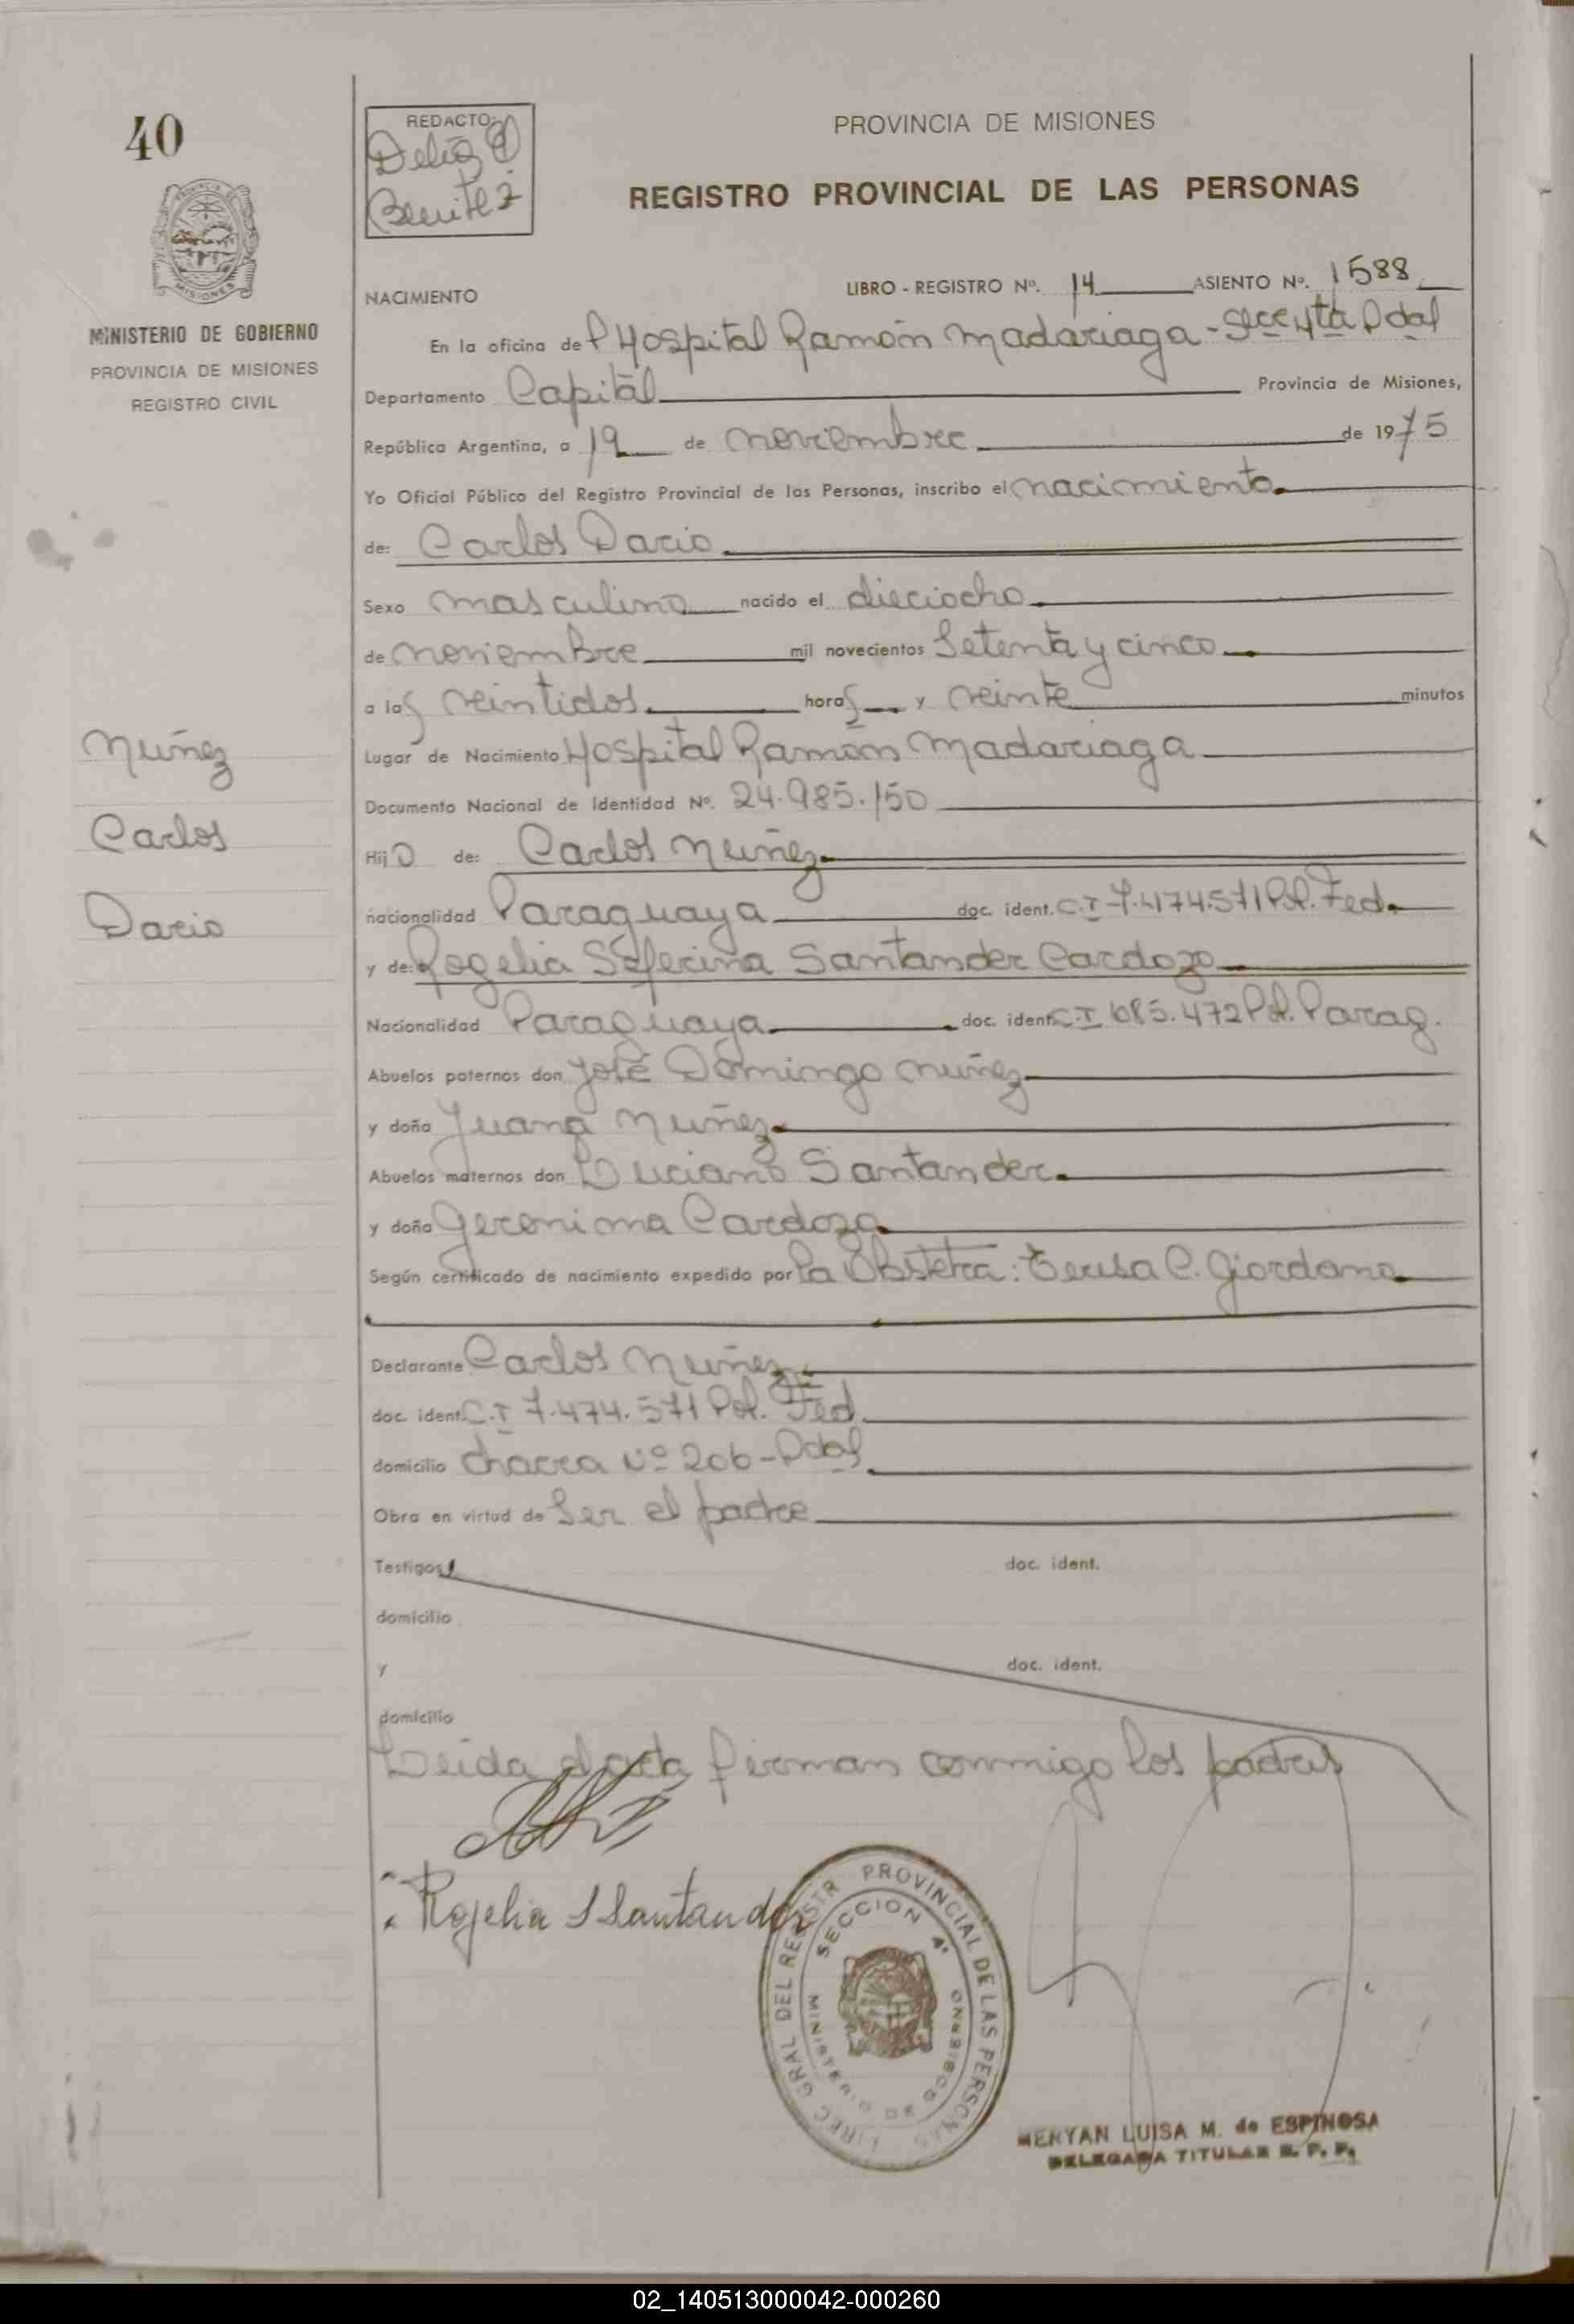 40
MINISTERIO DE GOBIERNO
PROVINCIA DE MISIONES
REGISTRO CIVIL
Nuñez
Carlos
Dario
REDACTO:
Delia
Benitez
PROVINCIA DE MISIONES
REGISTRO PROVINCIAL DE LAS PERSONAS
NACIMIENTO
LIBRO - REGISTRO Nº. 14 ASIENTO Nº. 1588
En la oficina del Hospital Ramón Madariaga - Secc 4ta Pdas
Departamento Capital Provincia de Misiones,
República Argentina, a 19 de noviembre de 1975
Yo Oficial Público del Registro Provincial de las Personas, inscribo el nacimiento
de: Carlos Dario
Sexo masculino nacido el dieciocho
de noviembre mil novecientos Setenta y cinco
a las veintidos horas y veinte minutos
Lugar de Nacimiento Hospital Ramón Madariaga
Documento Nacional de Identidad Nº. 24.985.150
Hijo de: Carlos Nuñez
nacionalidad Paraguaya doc. ident. C.I 7.474.571 Pol. Fed.
y de: Rogelia Seferina Santander Cardozo
Nacionalidad Paraguaya doc. ident. C.I 685.472 Pol. Parag.
Abuelos paternos don José Domingo Nuñez
y doña Juana Nuñez
Abuelos maternos don Luciano Santander
y doña Geronima Cardozo
Según certificado de nacimiento expedido por la Obstetra: Teresa C. Giordano
Declarante Carlos Nuñez
doc. ident. C.I 7.474.571 Pol. Fed
domicilio chacra Nº 206 - Pdas
Obra en virtud de Ser el padre
Testigos doc. ident.
domicilio
y doc. ident.
domicilio
Leida el acta firman conmigo los padres
Rogelia S Santander
DIREC GRAL DEL REGISTR PROVINCIAL DE LAS PERSONAS
SECCION 4ª
MINISTERIO DE GOBIERNO
MERYAN LUISA M. de ESPINOSA
DELEGADA TITULAR R. P. P.
02_140513000042-000260